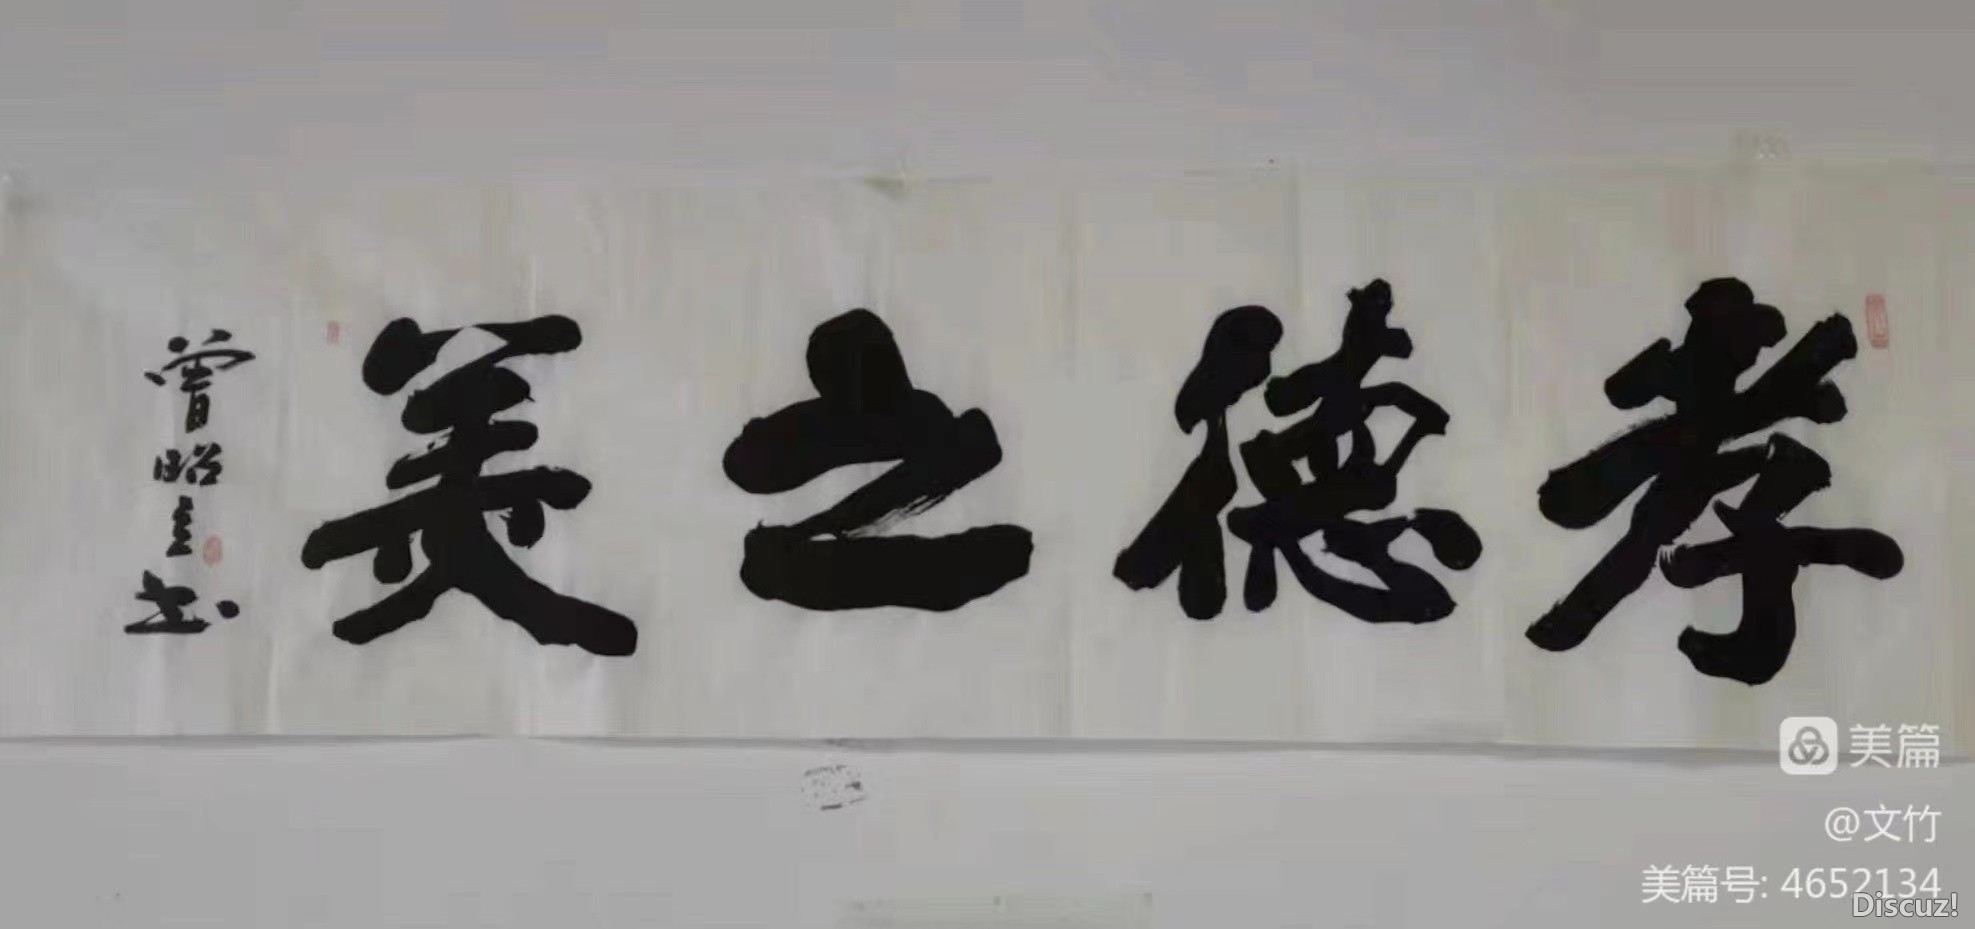 孝德之美
曾昭立书
美篇
@文竹
美篇号: 4652134
Discuz!